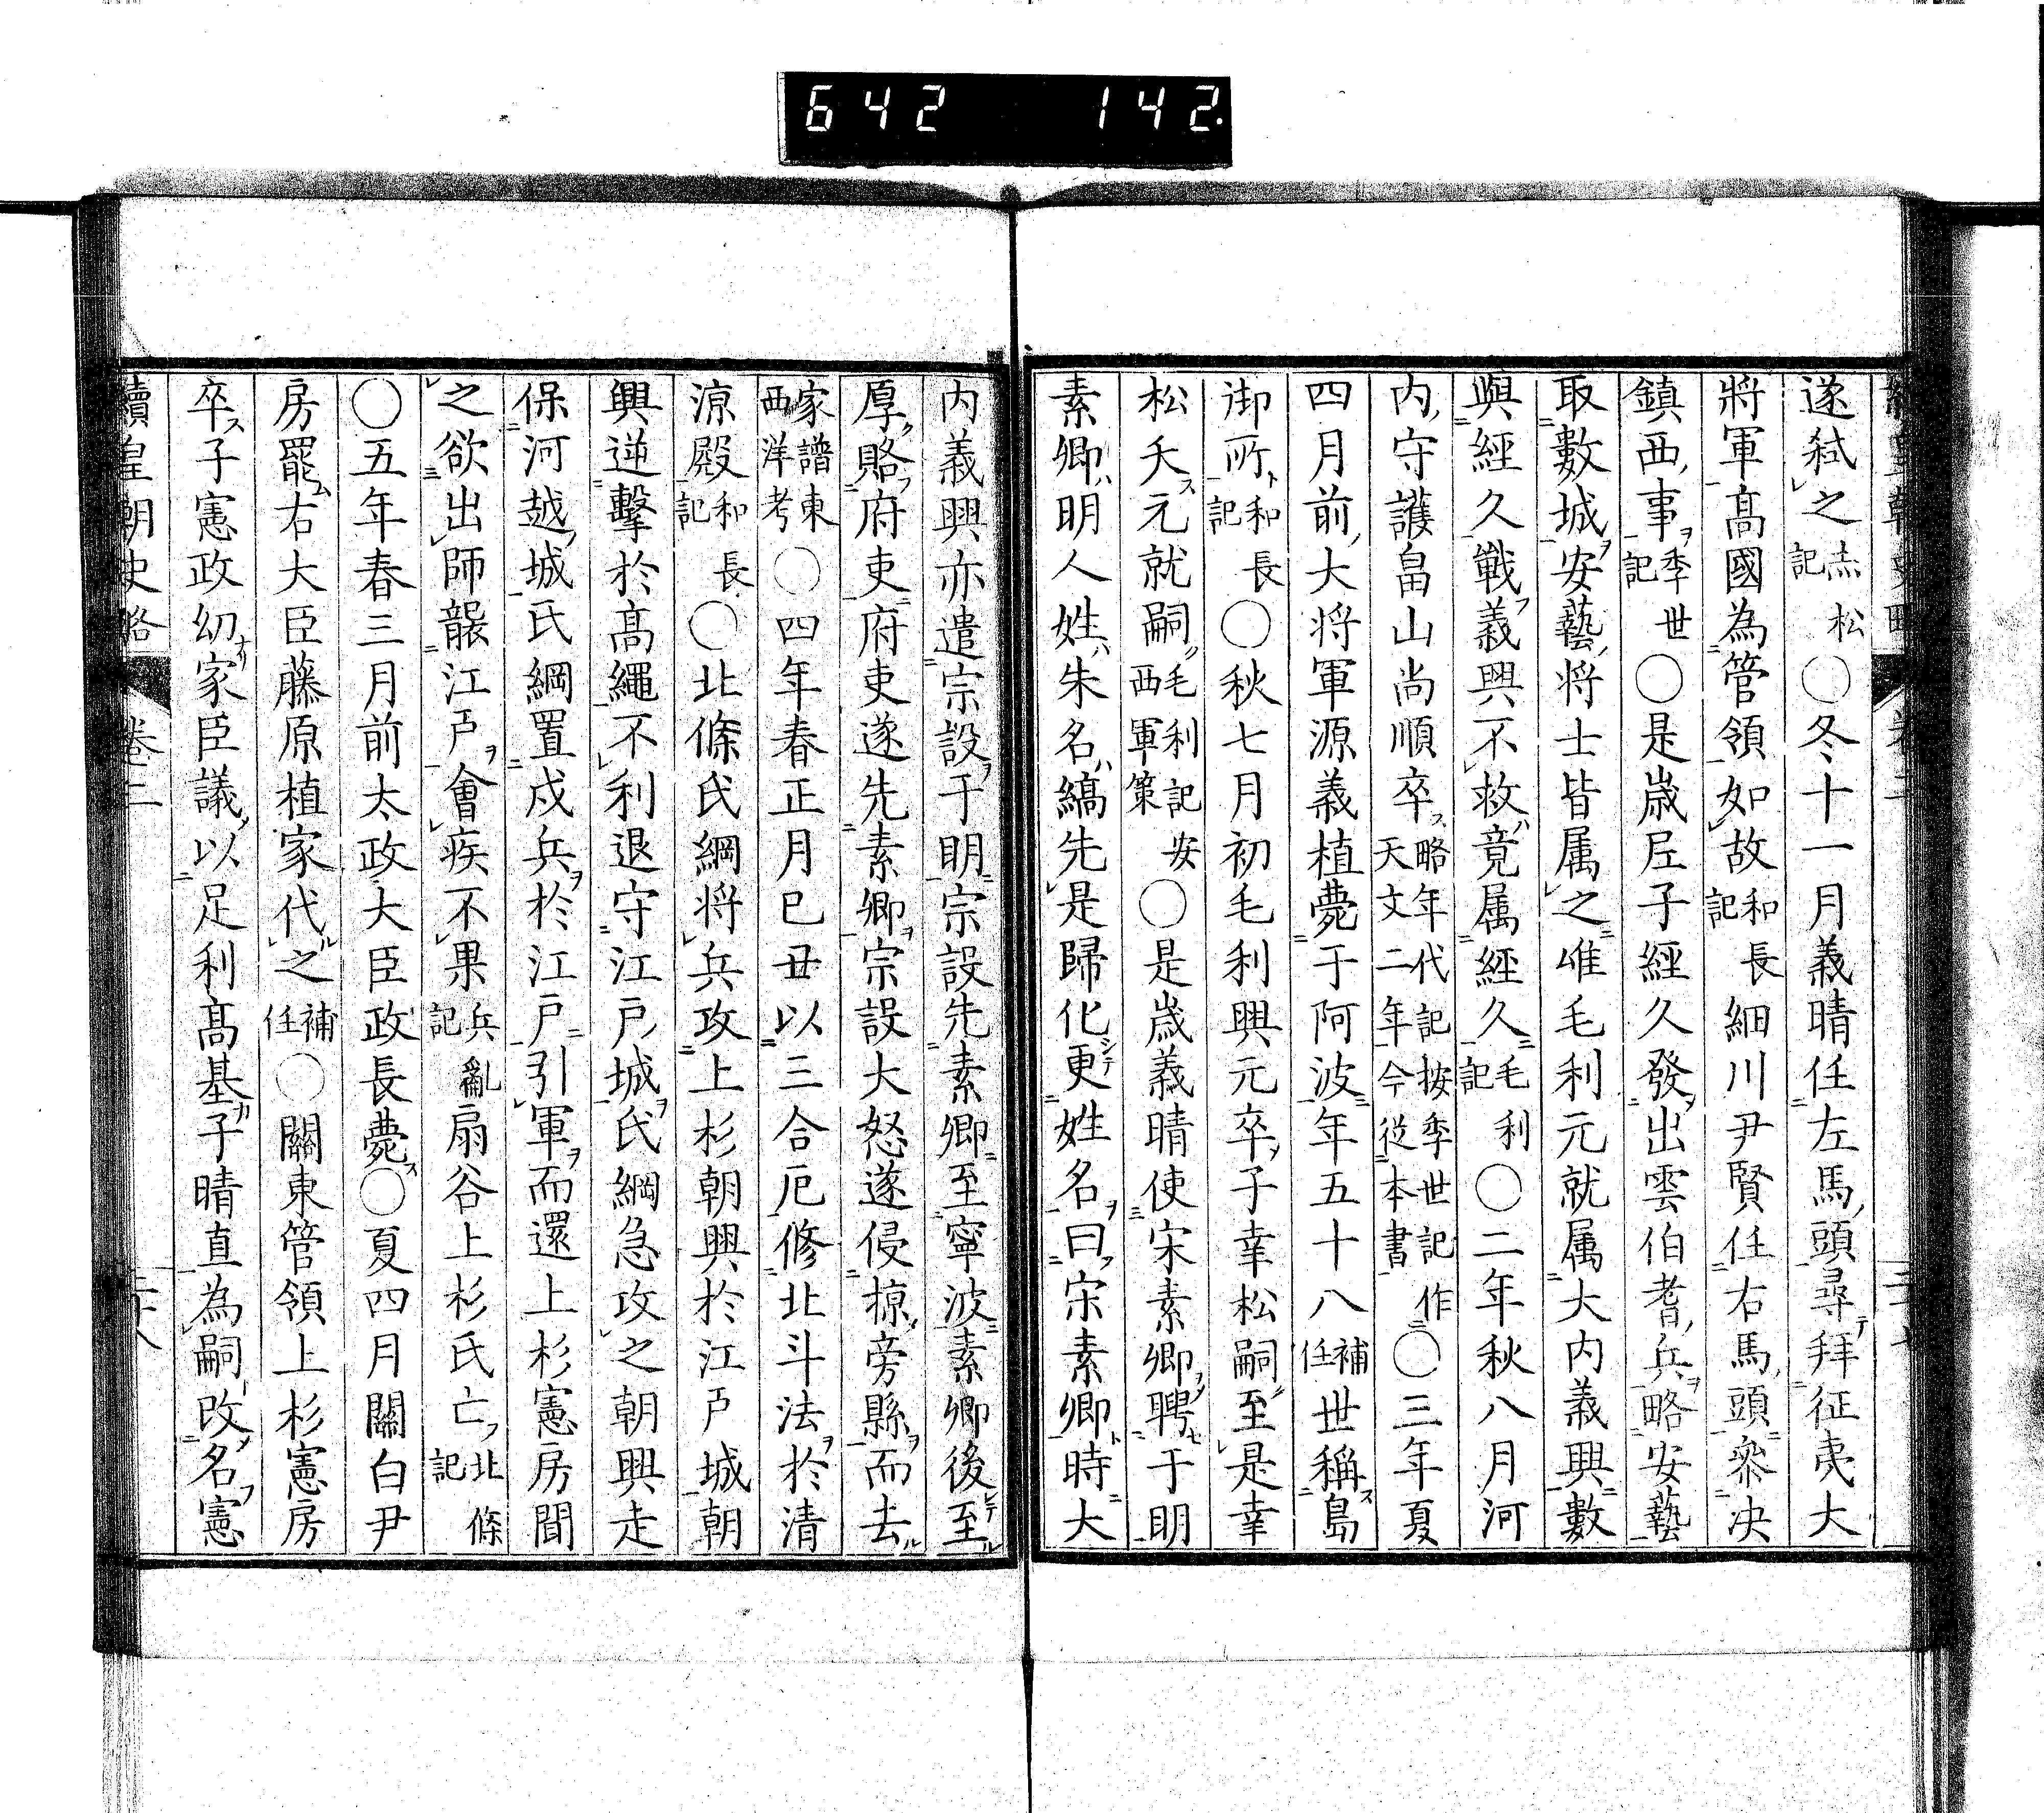 642 142
遂弑之赤松記○冬十一月義晴任左馬頭尋拜征夷大
將軍高國為管領如故和長記細川尹賢任右馬頭叅决
鎮西事季世記○是歳尼子經久發出雲伯耆兵略安藝
取數城安藝將士皆属之唯毛利元就属大内義興數
與經久戰義興不救竟属經久毛利記○二年秋八月河
内守護畠山尚順卒略年代記按季世記作天文二年今從本書○三年夏
四月前大将軍源義植薨于阿波年五十八補任世稱島
御所和長記○秋七月初毛利興元卒子幸松嗣至是幸
松夭元就嗣毛利記安西軍策○是歳義晴使宋素卿聘于明
素卿明人姓朱名縞先是歸化更姓名曰宋素卿時大
内義興亦遣宗設于明宗設先素卿至寧波素卿後至
厚賂府吏府吏遂先素卿宗設大怒遂侵掠旁縣而去
家譜東西洋考○四年春正月巳丑以三合厄修北斗法於清
涼殿和長記○北條氏綱将兵攻上杉朝興於江戸城朝
興逆擊於高繩不利退守江戸城氏綱急攻之朝興走
保河越城氏綱置戍兵於江戸引軍而還上杉憲房聞
之欲出師襲江戸會疾不果兵亂記扇谷上杉氏亡北條記
○五年春三月前太政大臣政長薨○夏四月關白尹
房罷右大臣藤原植家代之補任○關東管領上杉憲房
卒子憲政幼家臣議以足利高基子晴直為嗣改名憲
續皇朝史略 卷二